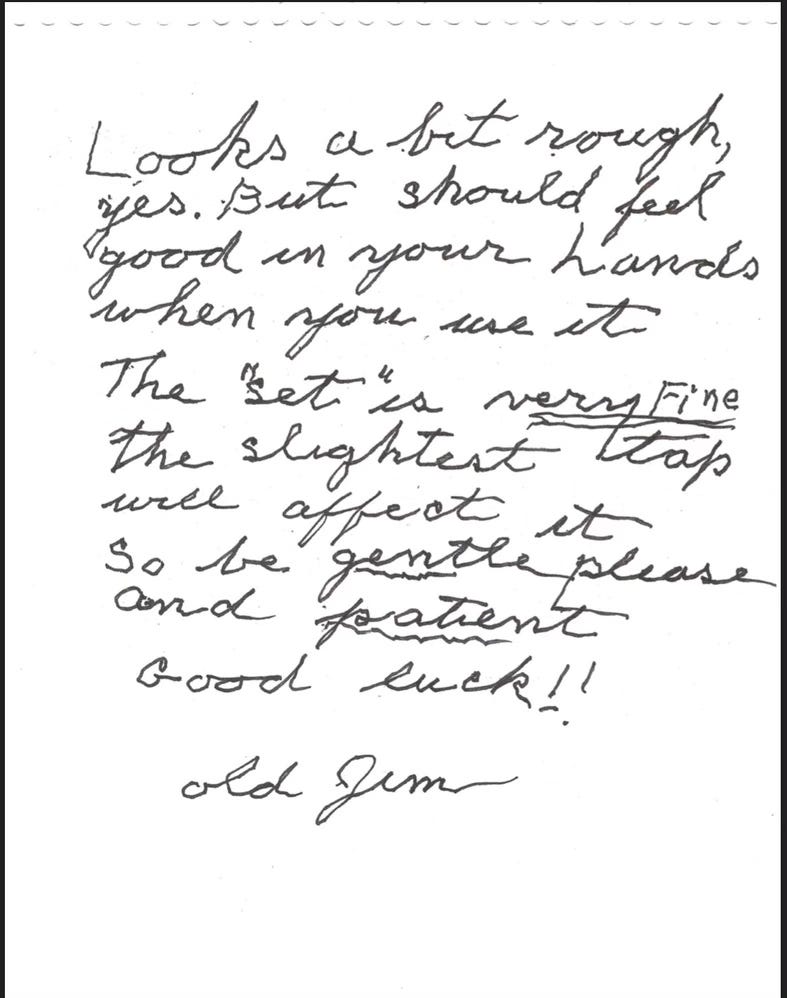 Looks a bit rough,
yes. But should feel
good in your hands
when you use it
The "set" is very Fine
the slightest tap
will affect it
So be gentle please
and patient
Good luck!!
old Jim